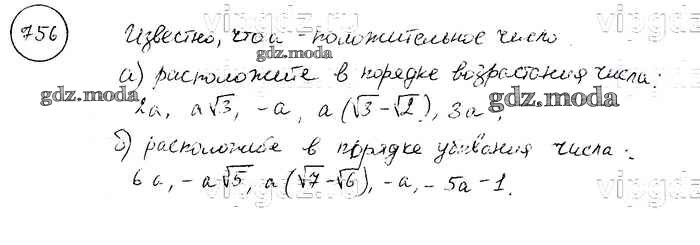 756 Известно, что a - положительное число
а) расположите в порядке возрастания числа:
2a, a√3, -a, a(√3-√2), 3a.
б) расположите в порядке убывания числа:
6a, -a√5, a(√7-√6), -a, -5a-1.
gdz.moda
gdz.moda
gdz.moda